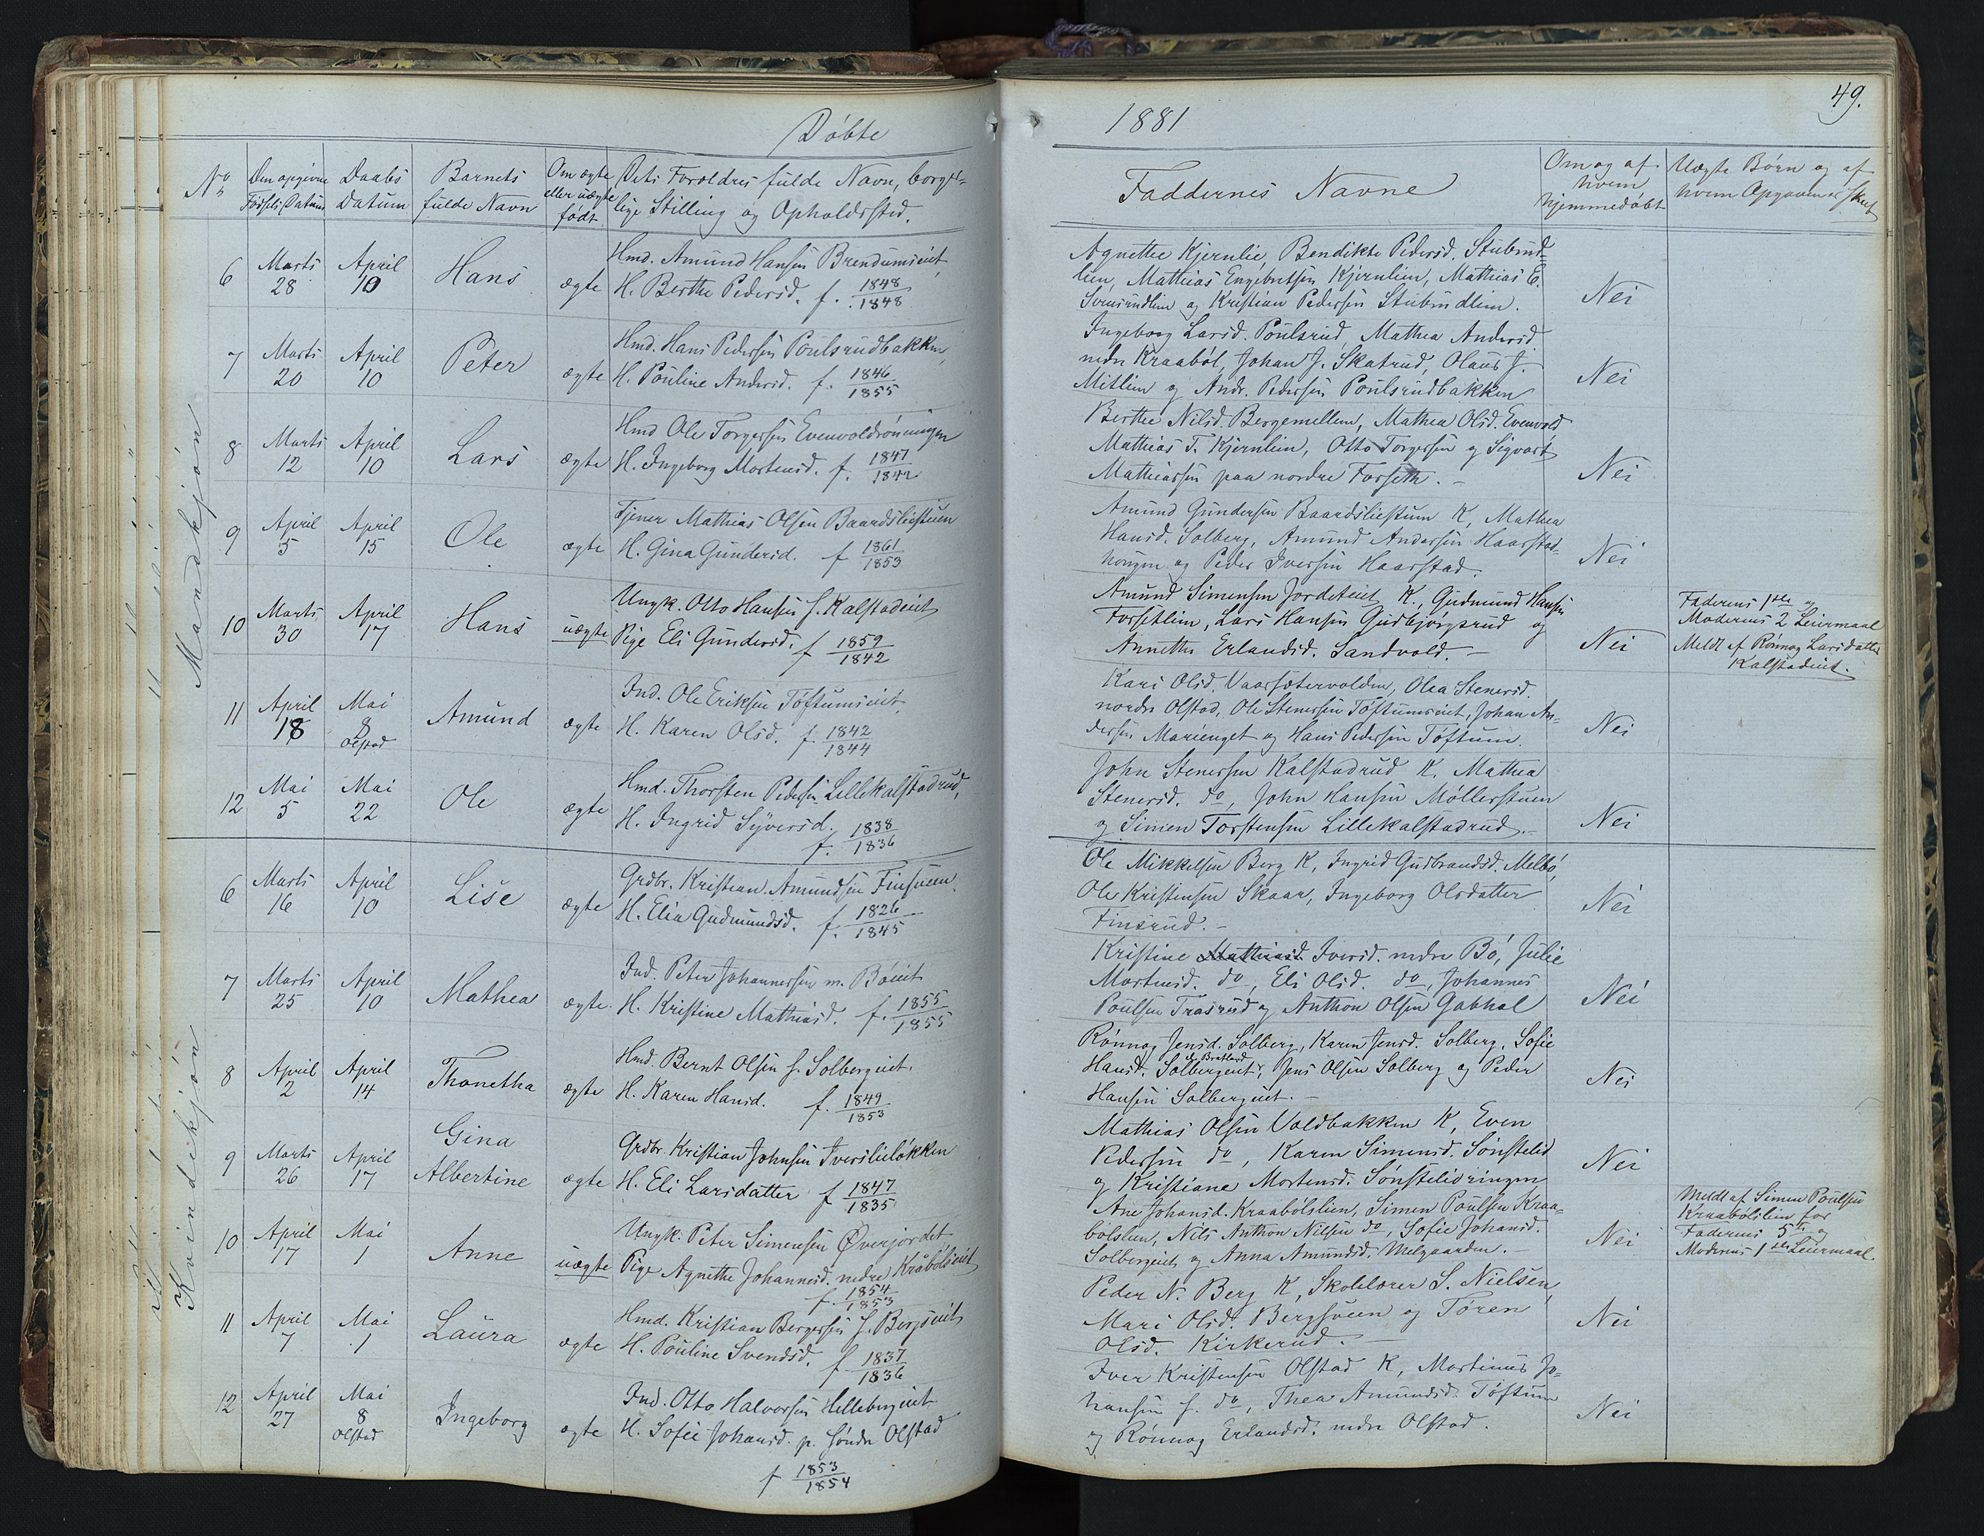 Døbte
1881
49.
No
Den opgivne Fødsels Datum
Daabs Datum
Barnets fulde Navn
Om ægte eller uægte født
Dets Foreldres fulde Navn, borgerlige Stilling og Opholdssted.
Faddernes Navne
Om og af hvem hjemmedøbt
Uægte Børn og af hvem Opgaven er skeet
Mandkjøn
6 Marts 28 April 10 Hans ægte
Hmd. Amund Hansen Brendumseiet,
H. Berthe Pedersd. f. 1848 1848
Agnethe Kjernlie, Bendikte Pedersd. Stubrud-
lien, Mathias Engebretsen Kjernlien, Mathias E.
og Kristian Pedersen Stubrudlien.
Nei
7 Marts 20 April 10 Peter ægte
Hmd. Hans Pedersen Poulsrudbakken,
H. Pouline Andersd. f. 1846 1855
Ingeborg Larsd. Poulsrud, Mathea Andersd.
nedre Kraabøl, Johan J. Skatrud, Olaus J.
Mitlien og Andr. Pedersen Poulsrudbakken
Nei
8 Marts 12 April 10 Lars ægte
Hmd Ole Torgersen Evenvoldrønningen
H. Ingeborg Mortensd. f. 1847 1842
Berthe Nilsd. Bergemellem, Mathea Olsd. Evenvold,
Mathias T. Kjernlien, Otto Torgersen og Sigvart
Mathiassen paa nordre Forseth.
Nei
9 April 5 April 15 Ole ægte
Tjener Mathias Olsen Baardsliestuen
H. Gina Gundersd. f 1861 1853
Amund Gundersen Baardsliestuen K, Mathea
Hansd. Solberg, Amund Andersen Haarstad-
haugen og Peder Iversen Haarstad.
Nei
10 Marts 30 April 17 Hans uægte
Ungk. Otto Hansen f. Kalstadeiet
Pige Eli Gundersd. f 1859 1842
Amund Simensen Jordeteiet K., Gudmund Hansen
Forsetlien, Lars Hansen Gudbjørgsrud og
Annethe Erlandsd. Sandvold.
Nei
Faderens 1ste og
Moderens 2 Leiermaal
Meldt af Rønnog Larsdatter
Kalstadeiet.
11 April 18 Mai 8 Olstad Amund ægte
Ind. Ole Eriksen Tøftumseiet,
H. Karen Olsd. f 1842 1844
Kari Olsd. Vaarsætervolden, Olea Stenersd.
nordre Olstad, Ole Stenersen Tøftumseiet, Johan An-
dersen Marienget og Hans Pedersen Tøftum.
Nei
12 Mai 5 Mai 22 Ole ægte
Hmd. Thorsten Pedersen Lillekalstadrud,
H. Ingrid Syversd. f. 1838 1836
John Stenersen Kalstadrud K. Mathea
Stenersd. do, John Hansen Møllerstuen
og Simen Torstensen Lillekalstadrud.
Nei
Kvindekjøn
6 Marts 16 April 10 Lise ægte
Grdbr. Kristian Amundsen Finsveen
H. Elia Gudmundsd. f. 1826 1845
Ole Mikkelsen Berg K, Ingrid Gudbrandsd. Melbø,
Ole Kristensen Skaar, Ingeborg Olsdatter
Finsrud.
Nei
7 Marts 25 April 10 Mathea ægte
Ind. Peter Johannessen n. Bøeiet
H. Kristine Mathiasd. f. 1855 1855
Kristine Mathiasd. Iversd. nedre Bø, Julie
Mortensd. do, Eli Olsd. do, Johannes
Poulsen Trasrud og Anthon Olsen Gobhol
Nei
8 April 2 April 14 Thonetha ægte
Hmd. Bernt Olsen f. Solbergeiet,
H. Karen Hansd. f. 1849 1853
Rønnog Jensd. Solberg, Karen Jensd. Solberg, Sofie
Hansd. Solbergeiet, Jens Olsen Solberg og Peder
Hansen Solbergeiet.
Nei
9 Marts 26 April 17 Gina Albertine ægte
Grdbr. Kristian Johnsen Iverslieløkken
H. Eli Larsdatter f 1847 1835
Mathias Olsen Voldbakken K, Even
Pedersen do, Karen Simensd. Sønstelid
og Kristiane Mortensd. Sønstelidringen
Nei
10 April 17 Mai 1 Anne uægte
Ungk. Peter Simensen Øverjordet
Pige Agnethe Johannesd. nedre Kråbølseiet
f. 1854 1853
Ane Johansd. Kraabølslien, Simen Poulsen Kraa-
bølslien, Nils Anthon Nilsen do, Sofie Johansd.
Solbergeiet og Anna Amundsd. Melgaarden.
Nei
Meldt af Simen Poulsen
Kraabølslien for
Faderens 5te og
Moderens 1ste Leiermaal.
11 April 7 Mai 1 Laura ægte
Hmd. Kristian Bergersen f. Bergseiet
H. Pouline Svendsd. f 1837 1836
Peder N. Berg K, Skolelærer S. Nielsen,
Mari Olsd. Bergsveen og Tøren
Olsd. Kirkerud.
Nei
12 April 27 Mai 8 Olstad Ingeborg ægte
Ind. Otto Halvorsen Hellebergeiet
H. Sofie Johansd. p. søndre Olstad
f 1853 1854
Iver Kristensen Olstad K, Martinus Jo-
hansen f. do, Thea Amundsd. Tøftum
og Rønnog Erlandsd. nedre Olstad.
Nei